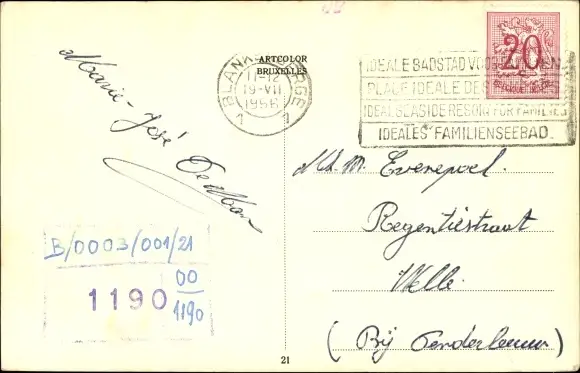 ARTCOLOR
BRUXELLES
BLANKENBERGE
11-12
19-VII
1956
1 1
20
IDEALE BADSTAD VOOR
PLAGE IDEALE DES
IDEAL SEASIDE RESORT FOR FAMILIES
IDEALES FAMILIENSEEBAD.
Marie-José De Man
B/0003/001/21
00
1190
1190
M. Evenepoel.
Regentiestraat
Welle.
(Bij Denderleeuw)
21